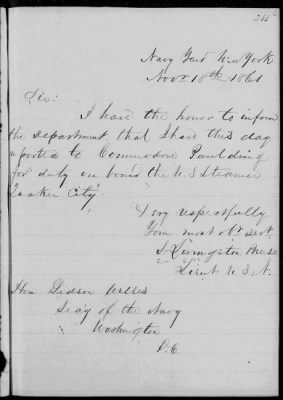 215
Navy Yard New York
Nov 18th 1861
Sir:
I have the honor to inform
the Department, that I have this day
reported to Commodore Paulding
for duty on board the U.S Steamer
"Quaker City".
Very respectfully
Your most obt servt
Livingston Breese
Lieut U.S.N.
Hon Gideon Welles
Sec'y of the Navy
Washington
D.C.